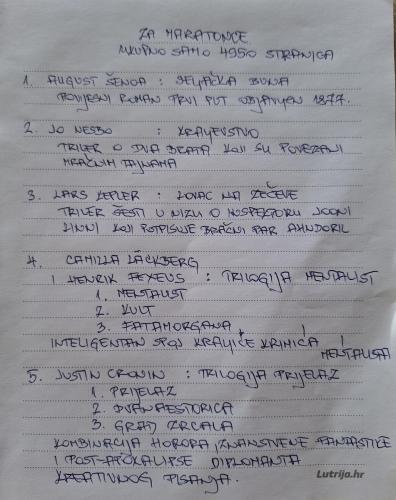 ZA MARATONCE
UKUPNO SAMO 4950 STRANICA
1. AUGUST ŠENOA : SELJAČKA BUNA
POVIJESNI ROMAN PRVI PUT OBJAVLJEN 1877.
2. JO NESBO : KRALJEVSTVO
TRILER O DVA BRATA KOJI SU POVEZANI
MRAČNIM TAJNAMA
3. LARS KEPLER : LOVAC NA ZEČEVE
TRILER ŠESTI U NIZU O INSPEKTORU JOONI
LINNI KOJI POTPISUJE BRAČNI PAR AHNDORIL
4. CAMILLA LÄCKBERG
I HENRIK FEXEUS : TRILOGIJA MENTALIST
1. MENTALIST
2. KULT
3. FATAMORGANA
INTELIGENTAN SPOJ KRALJICE KRIMIĆA I
MENTALISTA
5. JUSTIN CRONIN : TRILOGIJA PRIJELAZ
1. PRIJELAZ
2. DVANAESTORICA
3. GRAD ZRCALA
KOMBINACIJA HORORA, ZNANSTVENE FANTASTIKE
I POST-APOKALIPSE DIPLOMANTA
KREATIVNOG PISANJA.
Lutrija.hr